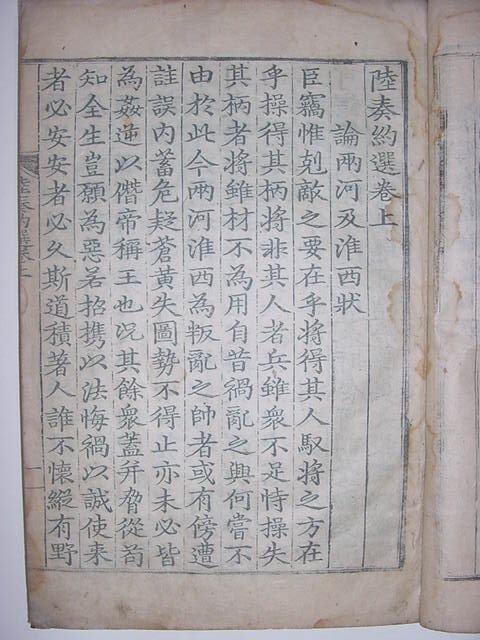 陸奏約選卷上
論兩河及淮西狀
臣竊惟剋敵之要在乎將得其人馭將之方在
乎操得其柄將非其人者兵雖衆不足恃操失
其柄者將雖材不為用自昔禍亂之興何嘗不
由於此今兩河淮西為叛亂之帥者或有傍遭
詿誤內蓄危疑蒼黃失圖勢不得止亦未必皆
為姦逆以僭帝稱王也况其餘衆蓋并脅從苟
知全生豈願為惡若招携以法悔禍以誠使来
者必安安者必久斯道積著人誰不懷縱有野
陸奏約選卷上
一